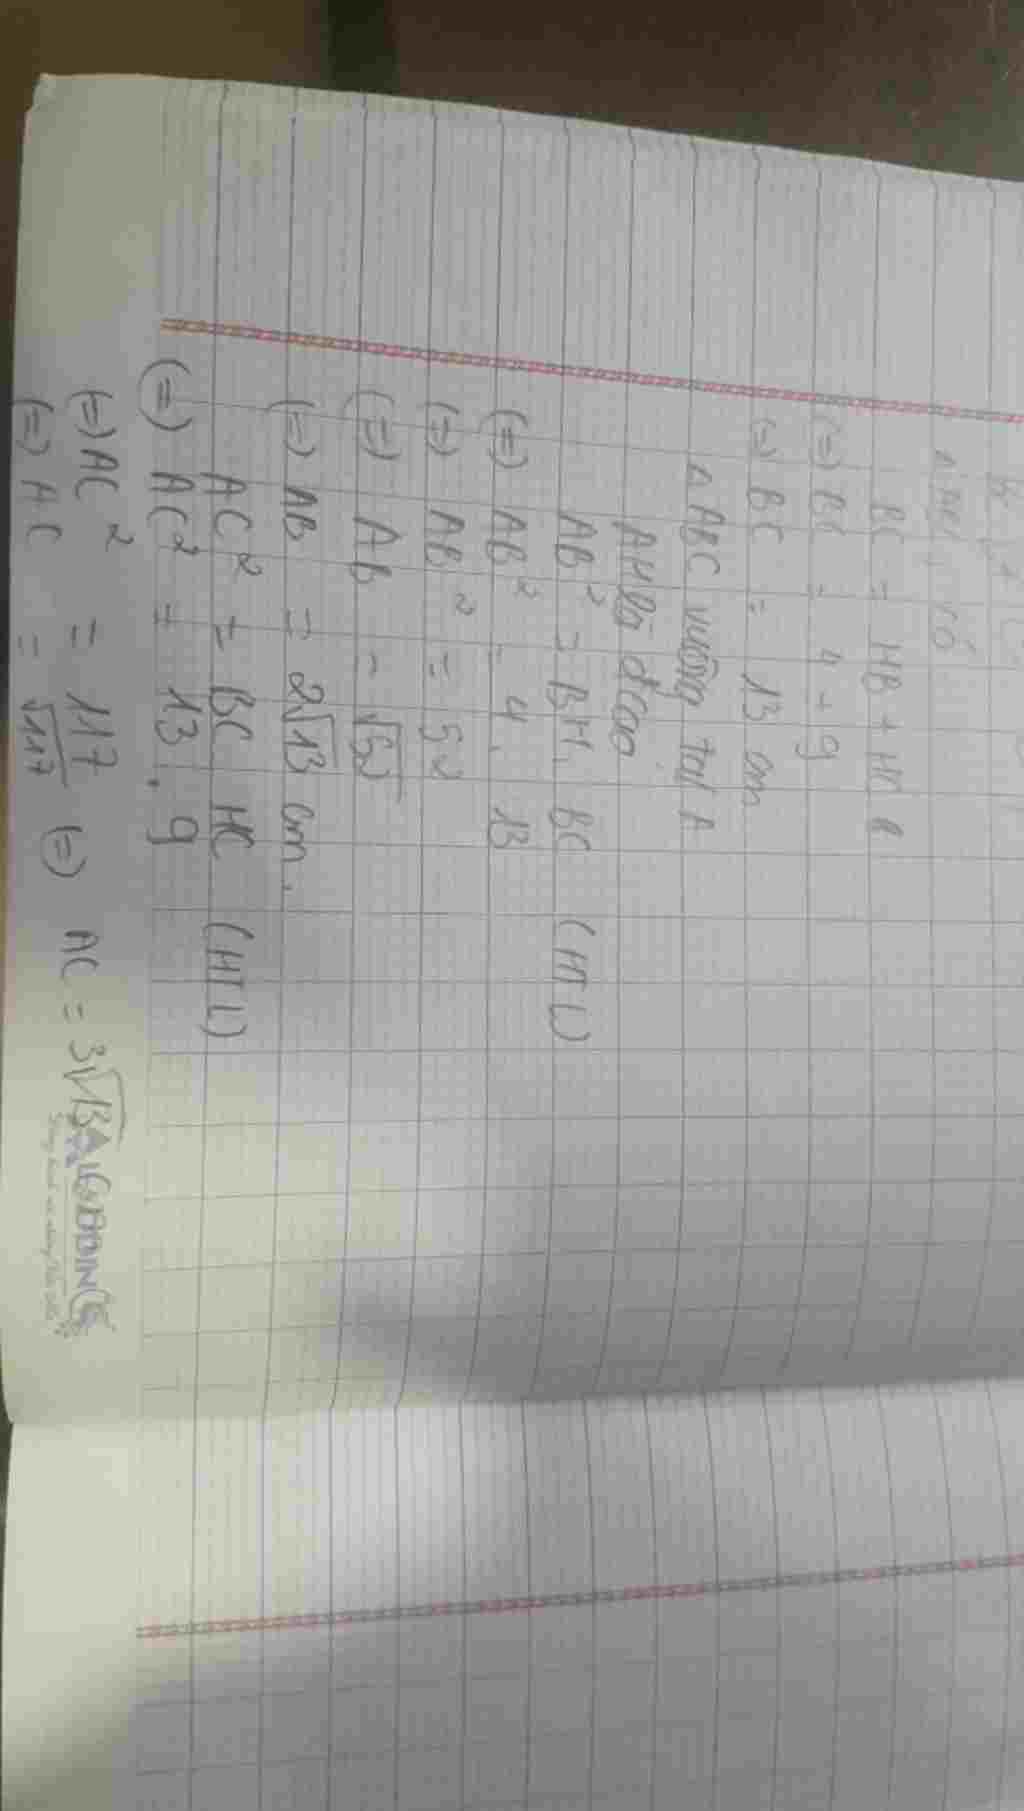 Δ ABC có
BC = HB + HC
(=) BC = 4 + 9
(=) BC = 13 cm
Δ ABC vuông tại A
AH là đ cao
AB² = BH. BC (HTL)
(=) AB² = 4. 13
(=) AB² = 52
(=) AB = √52
(=) AB = 2√13 cm.
AC² = BC HC (HTL)
(=) AC² = 13 . 9
(=) AC² = 117
(=) AC = √117 (=) AC = 3√13